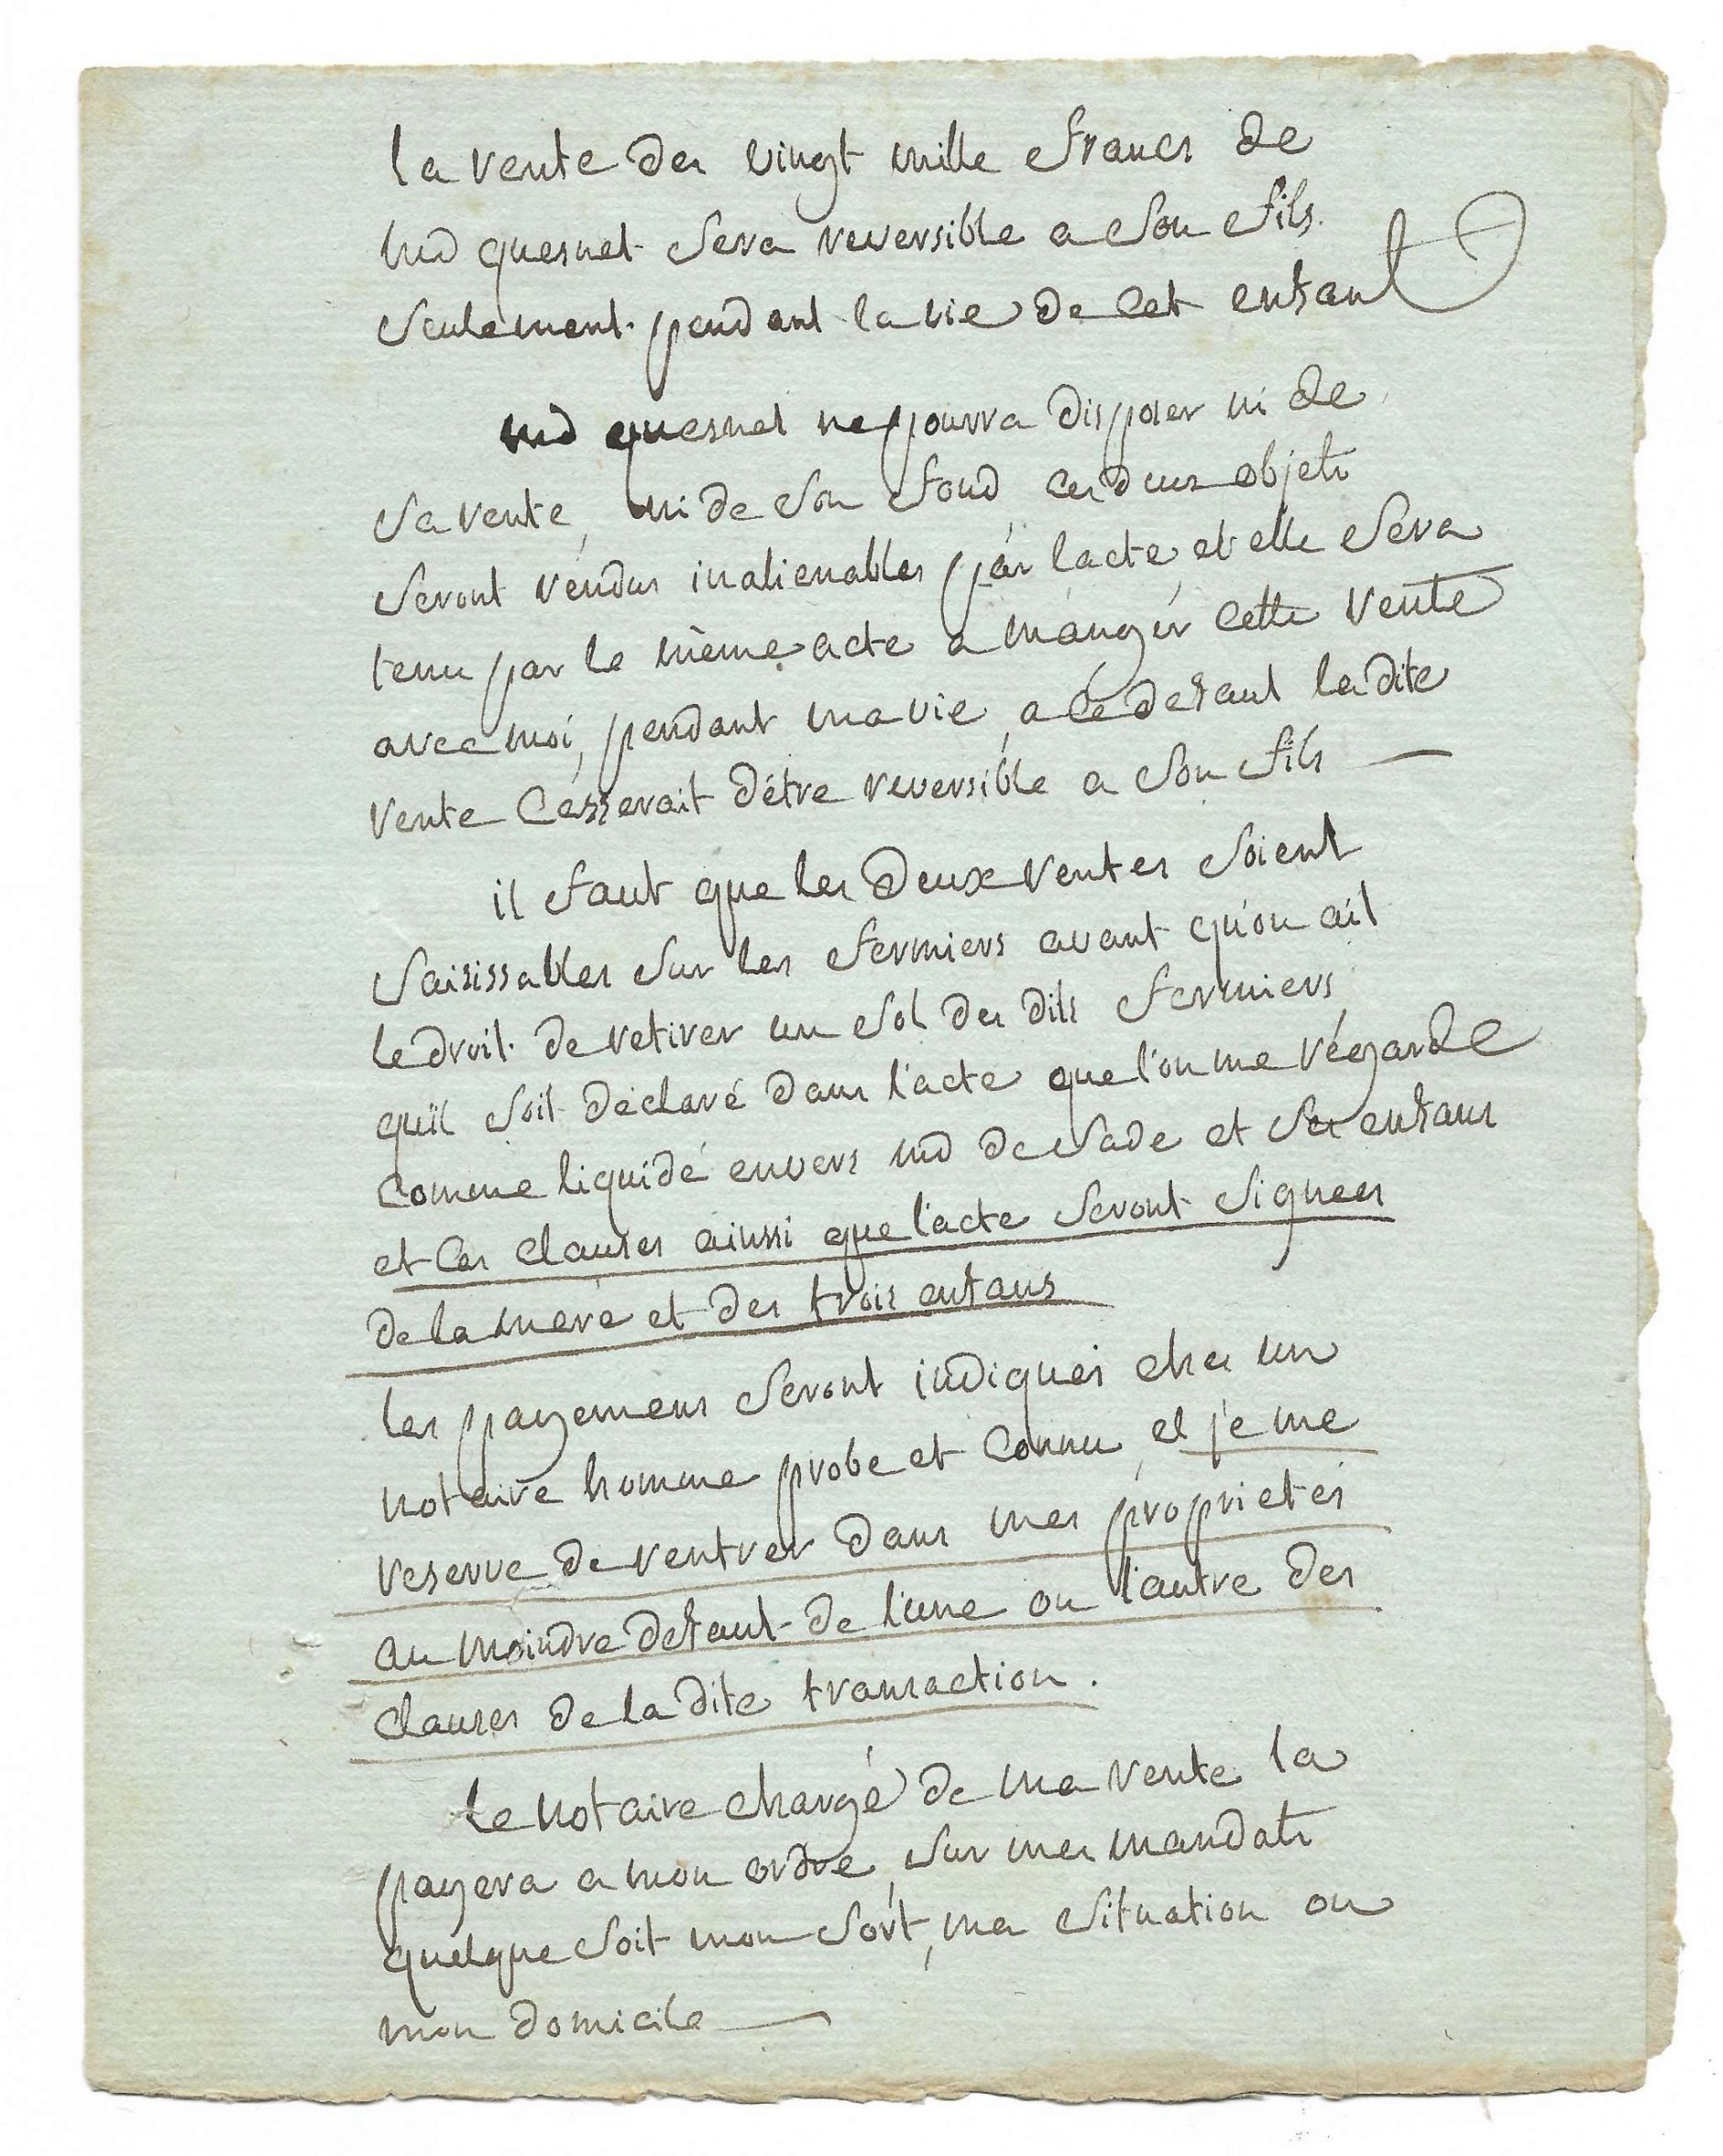 la rente des vingt mille francs de
md quesnet sera reversible a son fils.
seulement pendant la vie de cet enfant
md quesnet ne pourra disposer ni de
sa rente, ni de son fond ces deux objets
seront rendus inalienables par lacte et elle sera
tenu par le même acte a manger cette rente
avec moi, pendant ma vie, a ce defaut la dite
rente cesserait d'étre reversible a son fils —
il faut que les deux rentes soient
saisissables sur les fermiers avant qu'on ait
le droit de retirer un sol des dits fermiers,
quil soit déclaré dans l'acte que l'on me régarde
comme liquidé envers md de sade et ses enfans
et ces clauses ainsi que l'acte seront signees
de la mere et des trois enfans
les payemens seront indiqués ches un
notaire homme probe et connu, et je me
reserve de rentrer dans mes proprietés
au moindre defaut de l'une ou l'autre des
clauses de la dite transaction.
Le notaire chargé de ma rente la
payera a mon ordre, sur mes mandats
quelque soit mon sort, ma situation ou
mon domicile —